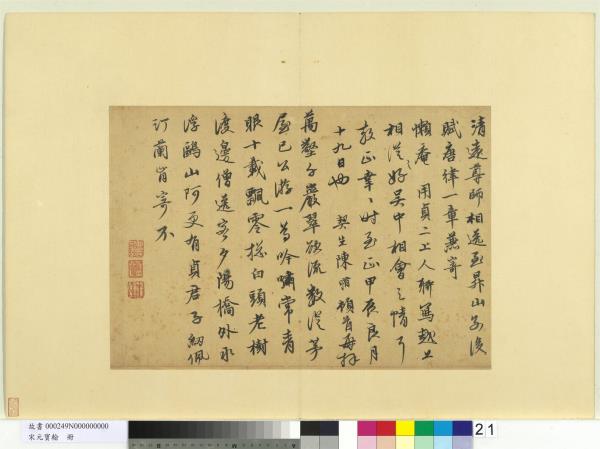 清遠尊師相送至昇山安後
賦唐律一章兼寄
懶庵用貞二上人聊篤越上
相從好吳中相會之情可
教正幸幸時至正甲辰良月
十九日也 契生陳 頓首再拜
萬壑千巖翠欲流數從茅
屋已公游一菴吟嘯常青
眼十載飄零總白頭老樹
渡邊僧送客夕陽橋外水
浮鷗山阿更有貞君子紉佩
汀蘭肯寄不
故書 000249N000000000
宋元寶繪 冊
21